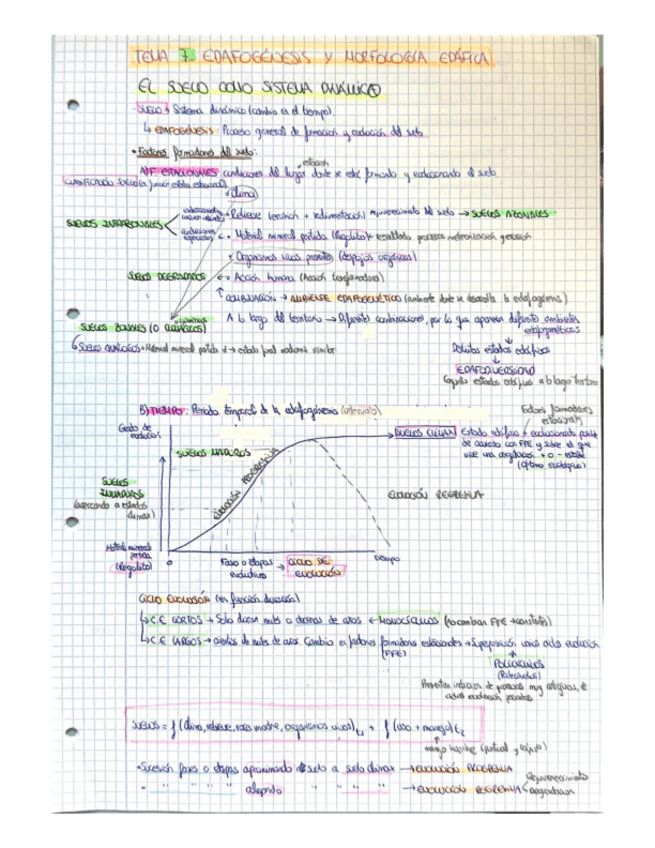 TEMA 7. EDAFOGÉNESIS Y MORFOLOGÍA EDÁFICA
EL SUELO COMO SISTEMA DINÁMICO
SUELO → Sistema dinámico (cambia en el tiempo)
↳ EDAFOGÉNESIS: Proceso general de formación y evolución del suelo
• Factores formadores del suelo:
estación
A) F. ESTACIONALES condiciones del lugar donde se está formando y evolucionando el suelo
CLASIFICACIÓN SUELOS
clima
SUELOS INTRAZONALES
• Relieve (erosión + sedimentación) rejuvenecimiento del suelo → SUELOS AZONALES
• Material mineral partida (Regolito) → resultado procesos meteorización y erosión
• Organismos vivos presentes (despojos orgánicos)
SUELOS DEGRADADOS ← • Acción humana (Acción transformadora)
↑ COMBINACIÓN → AMBIENTE EDAFOGENÉTICO (ambiente donde se desarrolla la edafogénesis)
A lo largo del territorio → Diferentes combinaciones, por lo que aparecen diferentes ambientes edafogenéticos
SUELOS ZONALES (O CLIMÁTICOS)
↳ SUELOS ANÁLOGOS → Material mineral partida ≠ → estado final madurez similar
Distintos estados edáficos
EDAFODIVERSIDAD
Conjunto estados edáficos a lo largo territorio
B) TIEMPO: Periodo temporal de la edafogénesis (intervalo)
Factores formadores estacionales
Grado de evolución
SUELOS MADUROS
SUELOS CLIMAX
Estado edáfico + evolucionado posible de acuerdo con FFE y sobre el que vive una vegetación + o - estable (óptimo ecológico)
SUELOS INMADUROS
(acercando a estados climax)
EVOLUCIÓN PROGRESIVA
EVOLUCIÓN REGRESIVA
Material mineral partida (Regolito)
0
Fases o etapas evolutivas → CICLO DE EVOLUCIÓN
tiempo
CICLO EVOLUCIÓN (en función duración)
↳ C.E. CORTOS → Solo duran miles o decenas de años ← MONOCÍCLICOS (no cambian FFE → constante)
↳ C.E. LARGOS → cientos de miles de años. Cambio en factores formadores estacionales → Superposición varios ciclos evolución
(FFE)
POLICÍCLICOS
Presentan indicios de procesos muy antiguos, de ciclos evolución pasados
SUELOS = f (clima, relieve, roca madre, organismos vivos) t₁ + f (uso + manejo) t₂
• Sucesión fases o etapas aproximando el suelo a suelo climax → EVOLUCIÓN PROGRESIVA
• " " " " alejando " " " " → EVOLUCIÓN REGRESIVA
rejuvenecimiento
degradación